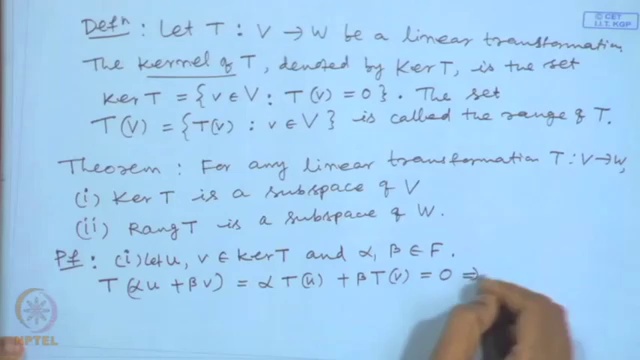 © CET
I.I.T. KGP
Defⁿ : Let T : V → W be a linear transformation
The kernel of T, denoted by Ker T, is the set
Ker T = {v ∈ V : T(v) = 0}. The set
T(V) = {T(v) : v ∈ V} is called the range of T.
Theorem : For any linear transformation T : V → W,
(i) Ker T is a subspace of V
(ii) Rang T is a subspace of W.
Pf : (i) Let u, v ∈ Ker T and α, β ∈ F.
T(αu + βv) = α T(u) + β T(v) = 0 ⇒
NPTEL